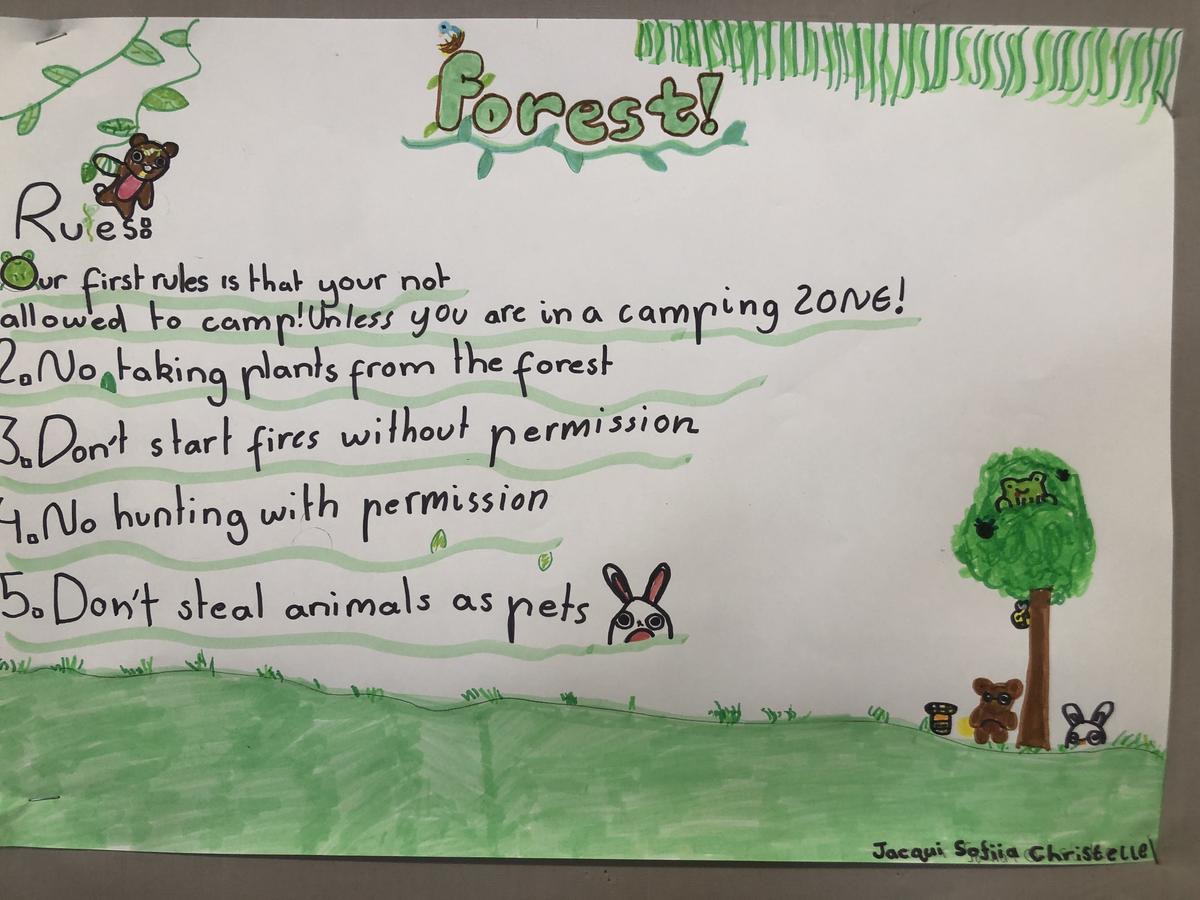 forest!
Rules:
Our first rules is that your not
allowed to camp! Unless you are in a camping ZONE!
2. No taking plants from the forest
3. Don't start fires without permission
4. No hunting with permission
5. Don't steal animals as pets
Jacqui Sofiia Christelle